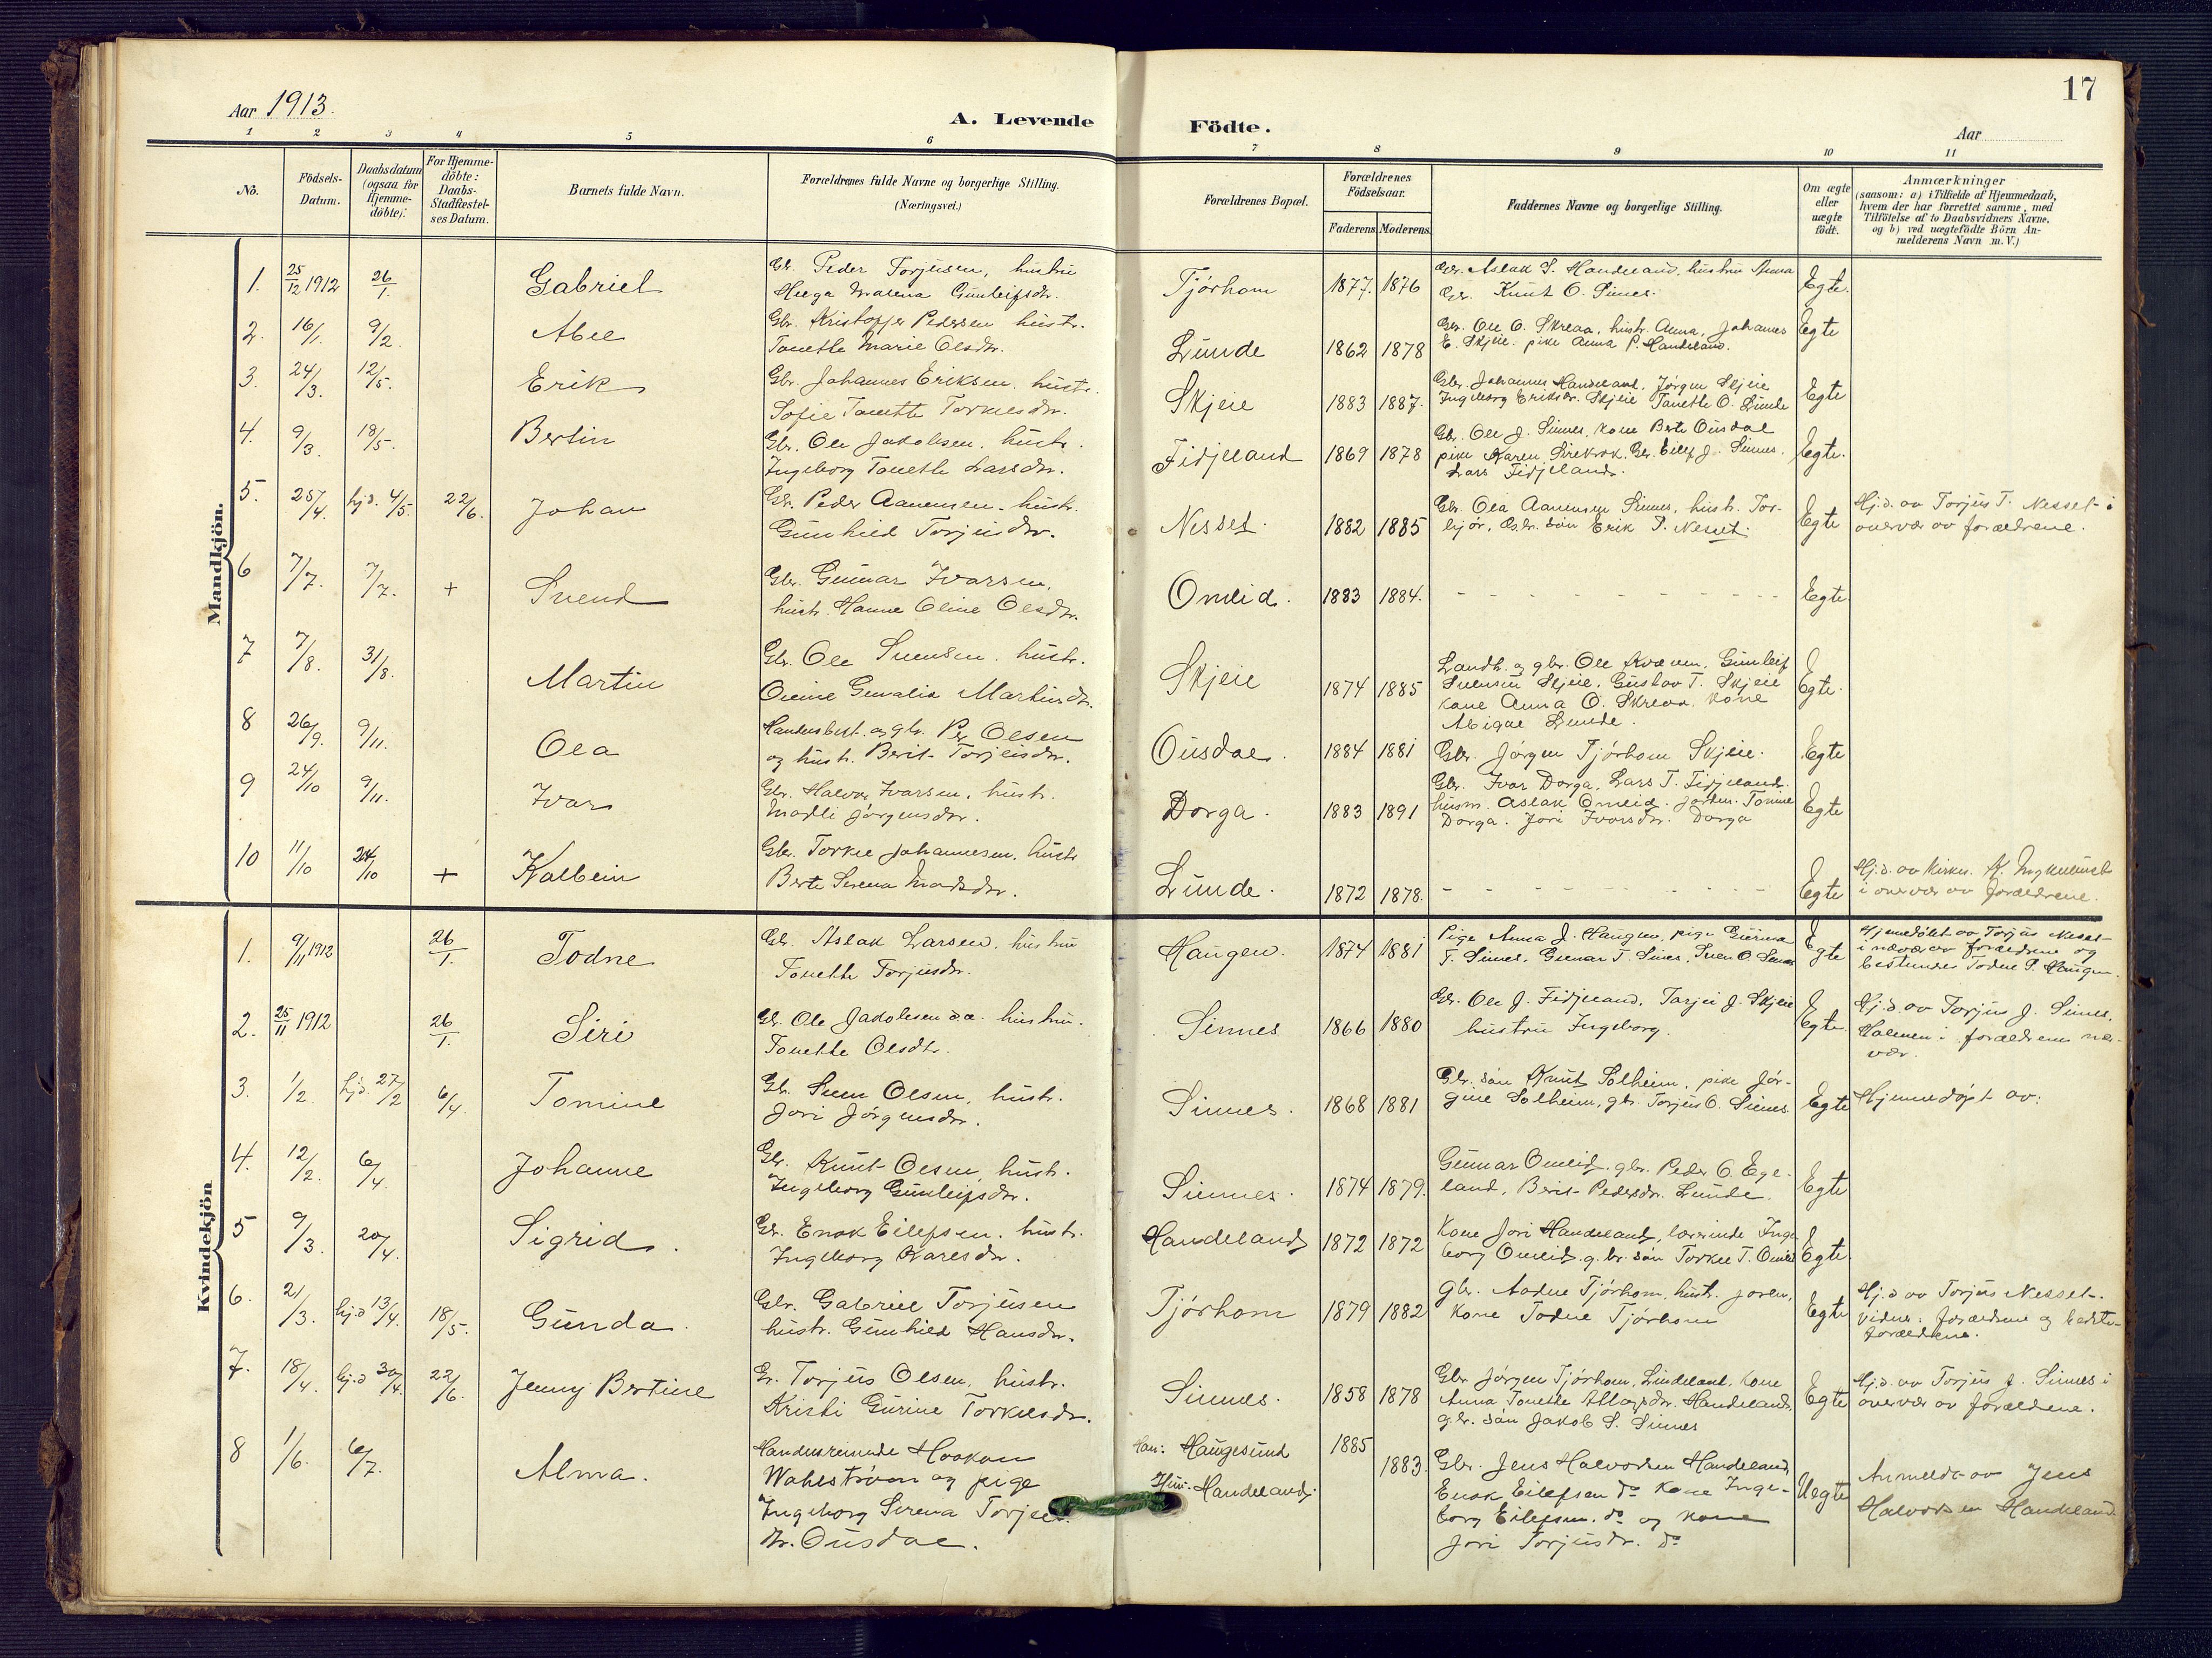 17
Aar 1913.
A. Levende Födte.
Aar
1 2 3 4 5 6 7 8 9 10 11
No.
Födsels-
Datum.
Daabsdatum
(ogsaa for
Hjemme-
döbte).
For Hjemme-
döbte:
Daabs-
Stadfæstel-
ses Datum.
Barnets fulde Navn.
Forældrenes fulde Navne og borgerlige Stilling.
(Næringsvei.)
Forældrenes Bopæl.
Forældrenes
Födselsaar.
Faderens. Moderens.
Faddernes Navne og borgerlige Stilling.
Om ægte
eller
uægte
födt.
Anmærkninger
(saasom: a) i Tilfælde af Hjemmedaab,
hvem der har forrettet samme, med
Tilföielse af to Daabsvidners Navne,
og b) ved uægtefödte Börn An-
melderens Navn m. V.)
Mandkjön.
1. 25/12 1912 26/1. Gabriel
Gbr. Peder Torjusen, hustru
Helga Malena Gunleifsdr.
Tjórhom 1877. 1876
Gbr. Aslak S. Handeland, hustru Anna
Gbr. Knut O. Sinnes.
Egte.
2. 16/1. 9/2. Abel
Gbr. Kristoffer Pedersen hustr.
Tonette Marie Olsdr.
Lunde 1862 1878
Gbr. Ole O. Skreaa, hustr. Anna, Johannes
E. Skjeie. pike Anna P. Handeland.
Egte
3. 24/3. 12/5. Erik
Gbr. Johannes Eriksen. hustr.
Sofie Tonette Torkelsdr.
Skjeie 1883 1887.
Gbr. Johannes Handeland, Jórgen Skjeie
Ingeborg Eriksdr. Skjeie Tonette O. Lunde
Egte
4. 9/3. 18/5. Bertin
Gbr. Ole Jakobsen. hustr.
Ingeborg Tonette Larsdr.
Fidjeland 1869 1878
Gbr. Ole J. Sinnes, kone Berte Ousdal
pike Karen Sirekrok. Gbr. Eilef J. Sinnes.
Lars Fidjeland.
Egte.
5. 25/4. hjd. 4/5. 22/6. Johan
Gbr. Peder Aanensen. hustr.
Gunhild Torjusdr.
Nesset. 1882 1885
Gbr. Ola Aanensen Sinnes, hustr. Tor-
bjór, Gbr. són Erik P. Nesset.
Egte
Hj.d. av Torjus T. Nesset i
overvær av forældrene.
6 7/7. 7/7. + Svend
Gbr. Gunnar Ivarsen,
hustr. Hanne Oline Olsdr.
Omlid. 1883 1884. - - - - - - - - - - - - Egte.
7 7/8. 31/8. Martin
Gbr. Ole Svensen. hustr.
Oline Genalia Martinsdr.
Skjeie 1874 1885
Landh. og gbr. Ole Kvæven, Gunleif
Svensen Skjeie, Gustav T. Skjeie
kone Anna O. Skreaa. kone
Abigael Lunde.
Egte.
8 26/9. 9/11. Ola
Handelsbest. og gbr. Per Olsen
og hustr. Berit Torjusdr.
Ousdal. 1884 1881
Gbr. Jórgen Tjórhom Skjeie.
Egte
9 24/10 9/11. Ivar
Gbr. Halvor Ivarsen, hustr.
Madli Jórgensdr.
Dorga. 1883 1891
Gbr. Ivar Dorga, Lars T. Fidjeland.
husm. Aslak Omlid. Tomine
Dorga. Jori Ivarsdr. Dorga
Egte
10 11/10 24/10 + Kolbein
Gbr. Torkel Johannesen. hustr
Berte Serena Madsdr.
Lunde. 1872 1878. - - - - - - - - - Egte
Hj.d. av Kirkes.
i overvær av forældrene.
Kvindekjön
1. 9/11 1912 26/1. Todne
Gbr. Aslak Larsen, hustru
Tonette Torjusdr.
Haugen. 1874 1881
Pige Anna J. Haugen, pige Gurina
T. Sinnes, Gunnar T. Sinnes, Sven O. Sinnes
Egte
Hjemmedöbt av Torjus Nesset
i nærvær av forældrene og
bestemor Todne P. Haugen.
2. 25/11 1912 26/1. Siri
Gbr. Ole Jakobsen hustru.
Tonette Olsdtr.
Sinnes 1866 1880
Gbr. Ole J. Fidjeland. Tarjei J. Skjeie
hustru Ingeborg.
Egte.
Hj.d. av Torjus J. Sinnes,
Holmen i forældrenes nær-
vær.
3. 1/2. hjd 27/2 6/4. Tomine
Gbr. Sven Olsen, hustr.
Jori Jórgensdr.
Sinnes. 1868 1881
Gbr. són Knut Solheim, pike Jór-
gine Solheim, gbr. Torjus O. Sinnes.
Egte
Hjemmedópt av:
4. 12/2. 6/4. Johanne
Gbr. Knut Olsen, hustr.
Ingeborg Gunleifsdr.
Sinnes. 1874 1879.
Gunnar Omlid. gbr. Peder O. Ege-
land, Berit Pedersdr. Lunde.
Egte
5 9/3. 20/4. Sigrid.
Gbr. Enok Eilefsen. hustr.
Ingeborg Karlsdr.
Handeland 1872 1872
Kone Jori Handeland, lærerinde Inge-
borg Omlid. g.br. són Torkel T. Omlid
Egte.
6. 21/3. hj.d 13/4. 18/5. Gunda.
Gbr. Gabriel Torjusen
hustr. Gunhild Hansdr.
Tjórhom 1879 1882
Gbr. Aadne Tjórhom, hustr. Joren,
Kone Todne Tjórhom
Egte
Hj.d av Torjus Nesset.
vidner: forældrene og bedste-
forældrene.
7. 18/4. hj.d 30/4. 22/6. Jenny Bertine
Gbr. Torjus Olsen, hustr.
Kristi Gurine Torkelsdr.
Sinnes. 1858 1878
Gbr. Jórgen Tjórhom, Lindeland, Kone
Anna Tonette Handeland,
g.br. són Jakob S. Sinnes
Egte
Hj.d. av Torjus J. Sinnes i
overvær av forældrene.
8 1/6. 6/7. Alma.
Handelsreisende Haakon
Wahlstróm og pige
Ingeborg Serena Torjus-
dr. Ousdal.
Han: Haugesund 1885
Hun: Handeland. 1883.
Gbr. Jens Halvorsen Handeland,
Enok Eilefsen do Kone Inge-
borg Eilefsen. do og kone
Jori Torjusdr. do
Uegte
Anmeldt av Jens
Halvorsen Handeland